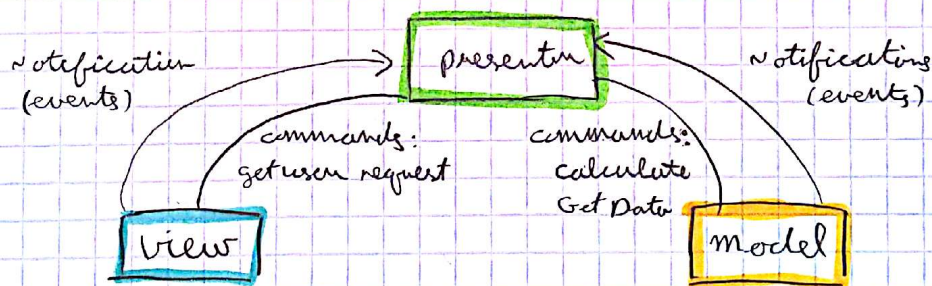 Notification
(events)
presenter
Notifications
(events)
commands:
get user request
commands:
calculate
Get Data
view
model